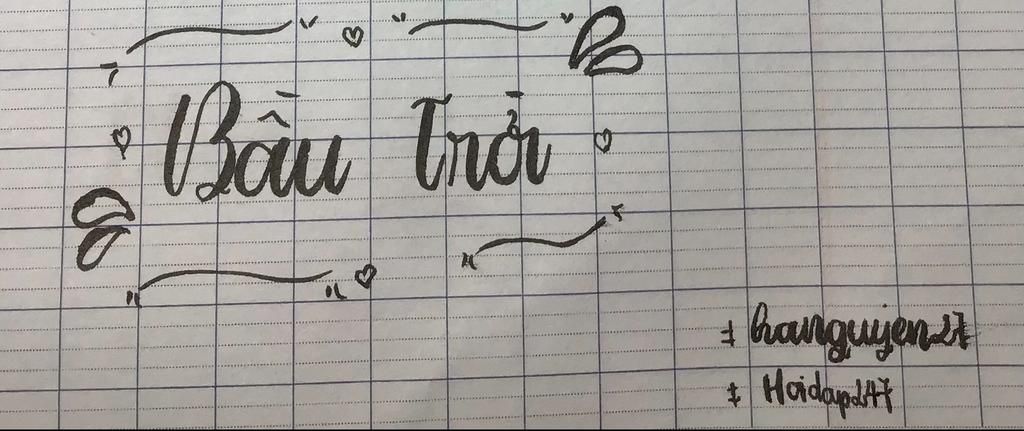 Bầu Trời
+ hanguyen27
+ Hoidap247